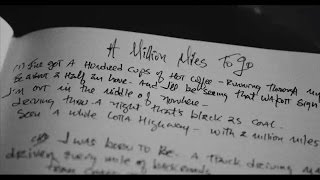 A Million Miles To go
(1) I've got A Hundred Cups of Hot Coffee - Running Through my
& about 2 Half an hour - And I'll be seeing that Wafort sign
I'm out in the middle of nowhere -
driving thru A night that's black as coal
Seen a whole Lotta Highway - with a million miles
(2) I was born to Be - A Truck driving m
driving every mile of